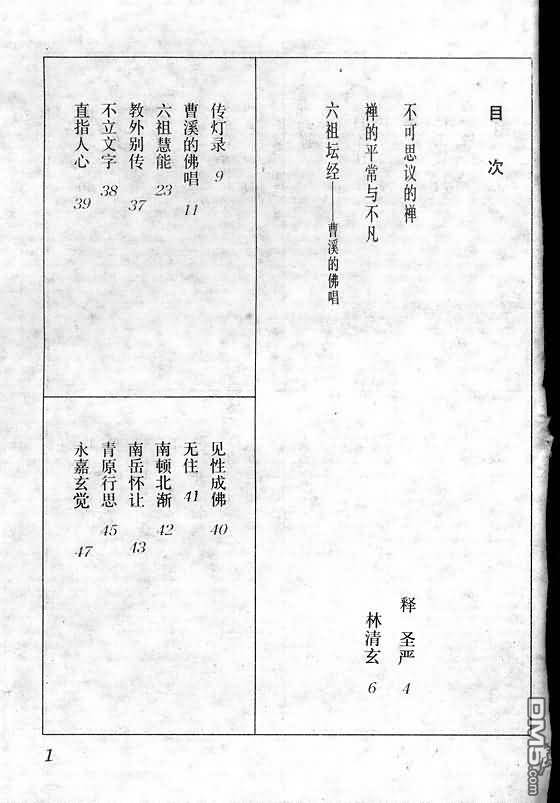 目次
不可思议的禅 释圣严 4
禅的平常与不凡 林清玄 6
六祖坛经——曹溪的佛唱
传灯录 9
曹溪的佛唱 11
六祖慧能 23
教外别传 37
不立文字 38
直指人心 39
见性成佛 40
无住 41
南顿北渐 42
南岳怀让 43
青原行思 45
永嘉玄觉 47
1
DM5.com